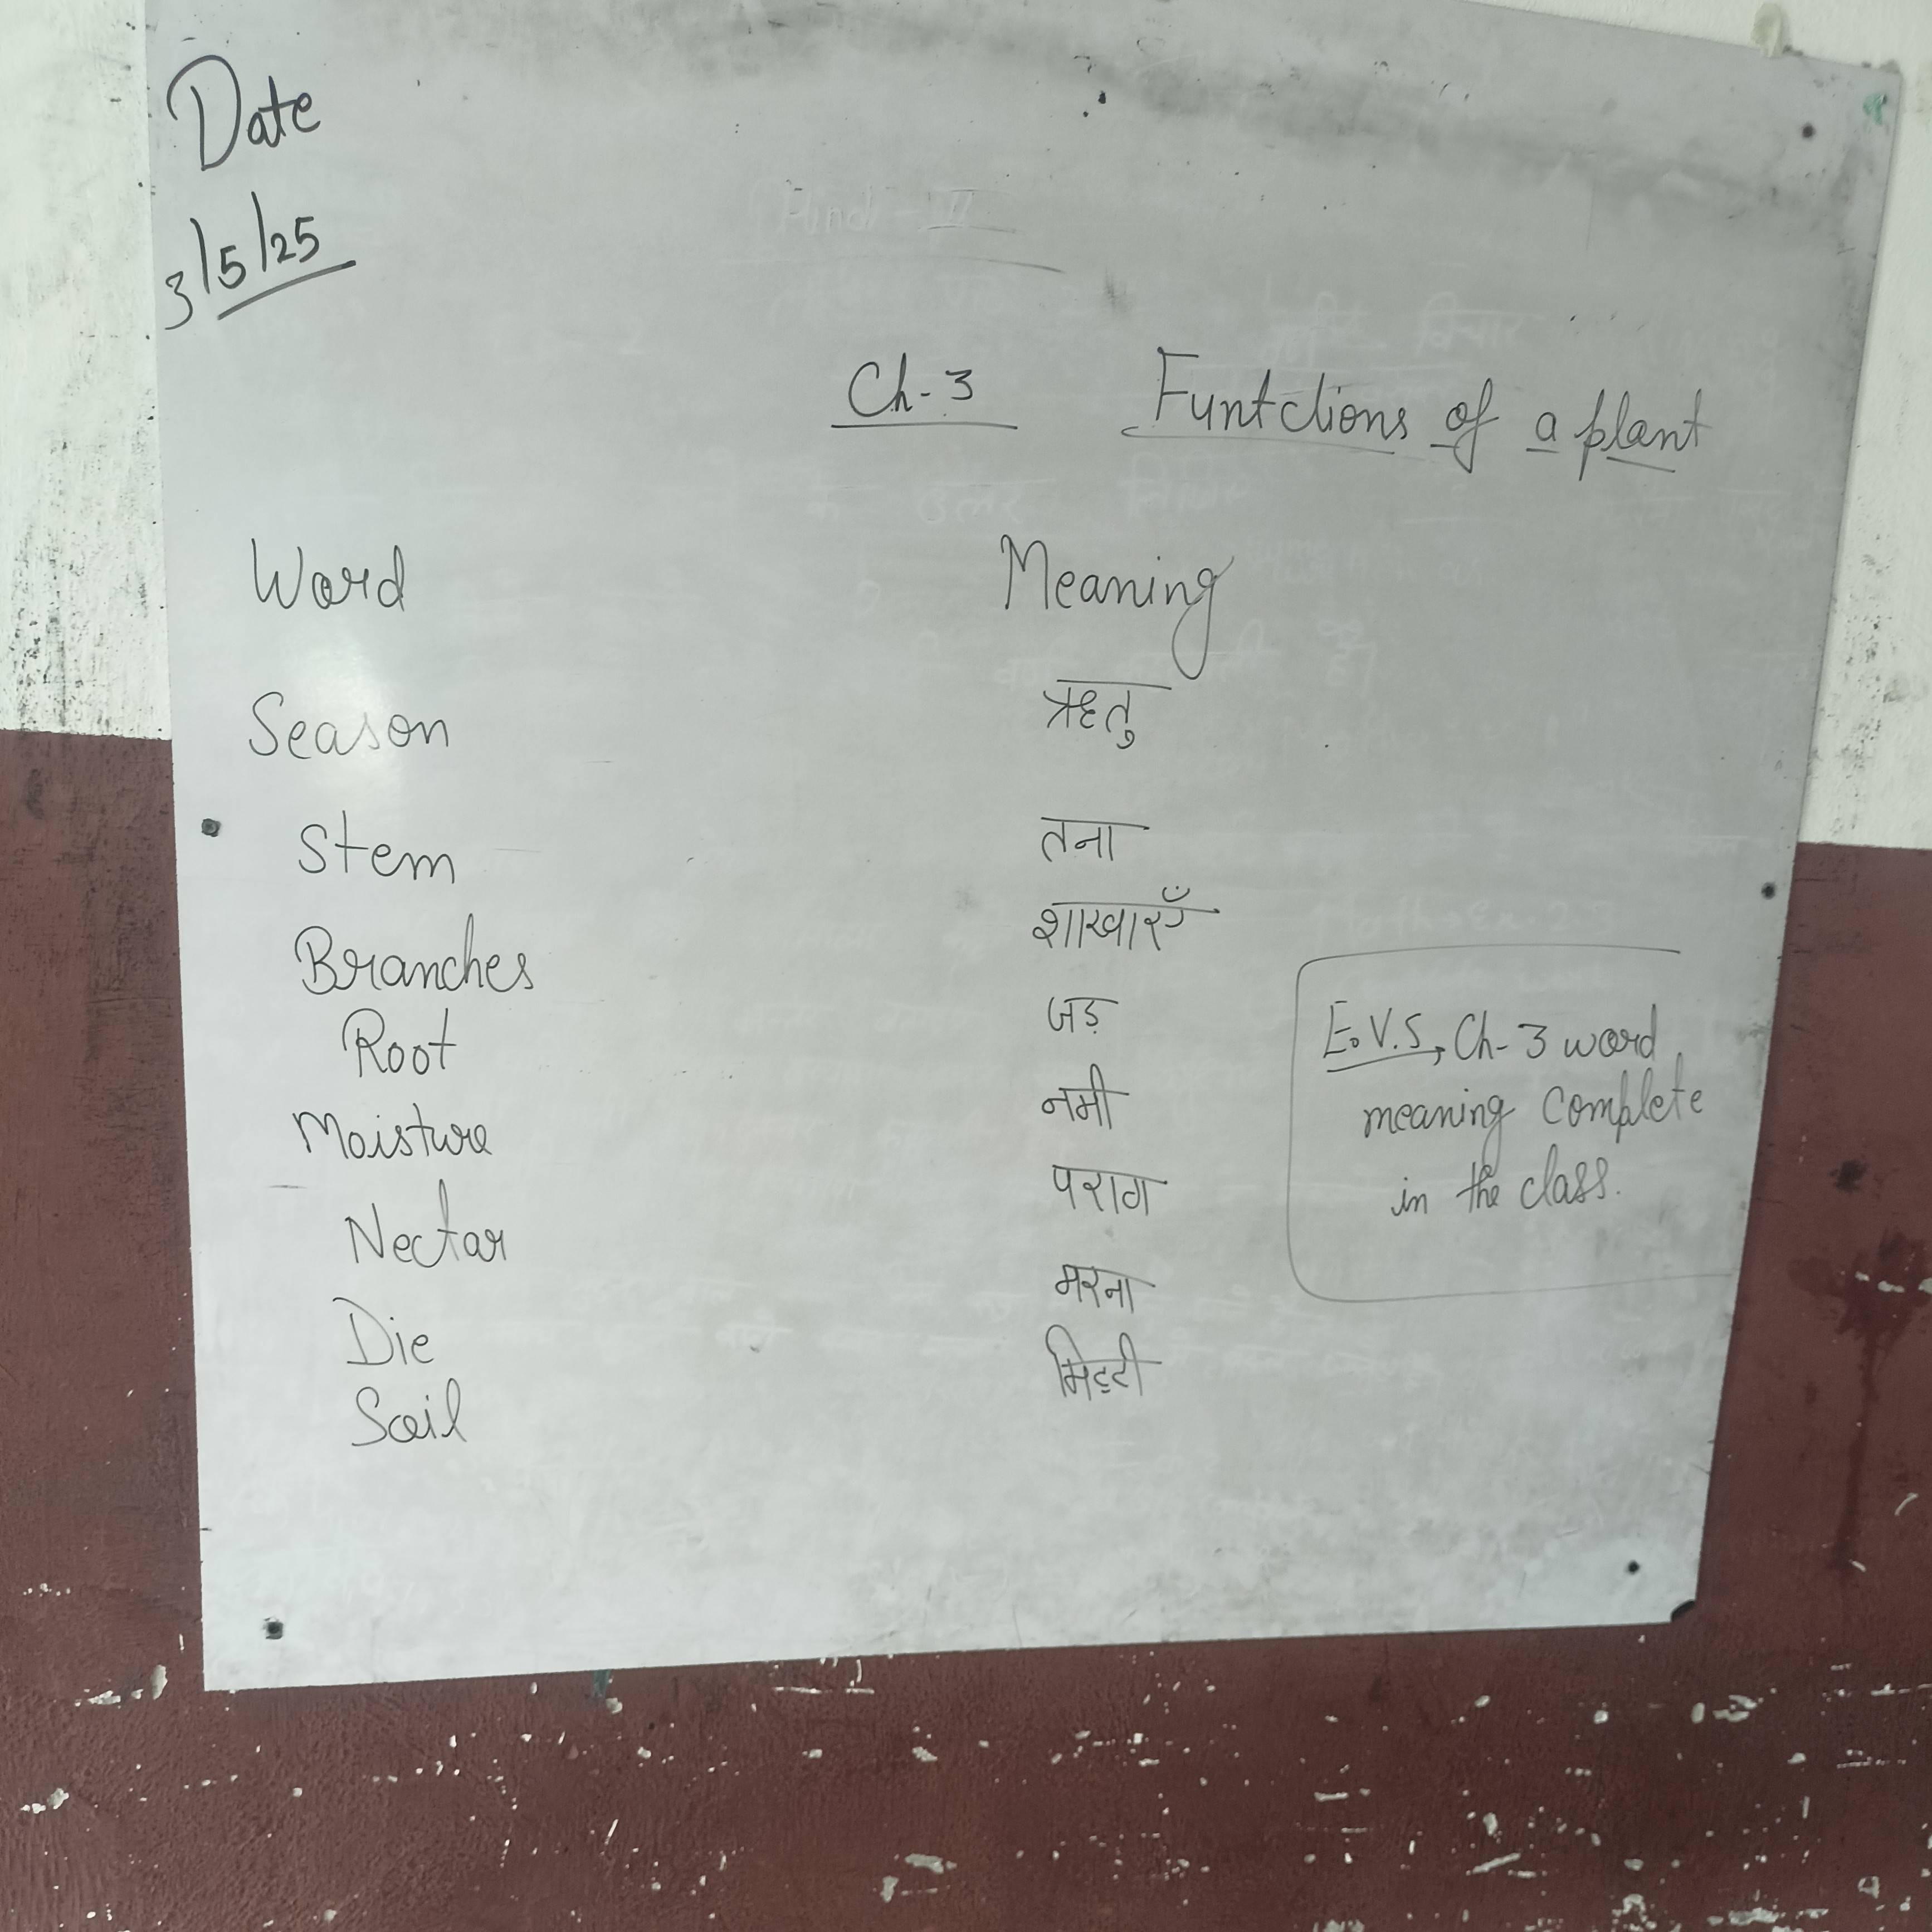 Date
3/5/25
Ch-3 Funtctions of a plant
Word Meaning
Season ऋतु
Stem तना
Branches शाखाएँ
Root जड़
Moisture नमी
Nectar पराग
Die मरना
Soil मिट्टी
E.V.S, Ch-3 word
meaning complete
in the class.